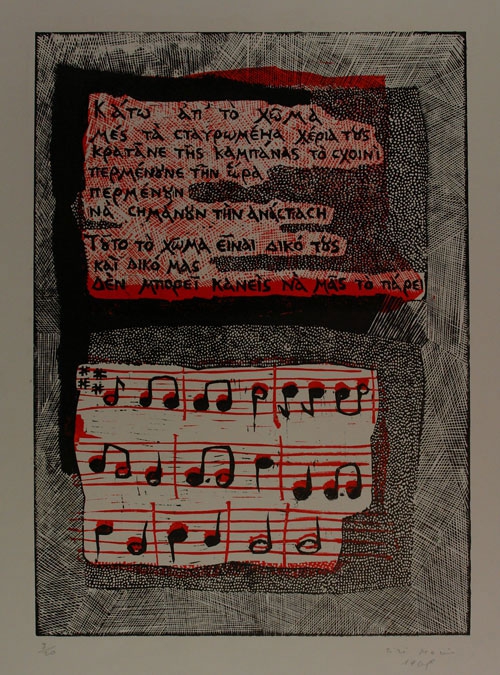 Κάτω ἀπ' τὸ χῶμα
μὲς τὰ σταυρωμένα χέρια τους
κρατᾶνε τῆς καμπάνας τὸ σχοινὶ
περμένουνε τὴν ὥρα
περμένουν
νὰ σημάνουν τὴν ἀνάσταση
Τοῦτο τὸ χῶμα εἶναι δικό τους
καὶ δικό μας
δὲν μπορεῖ κανεὶς νὰ μᾶς τὸ πάρει